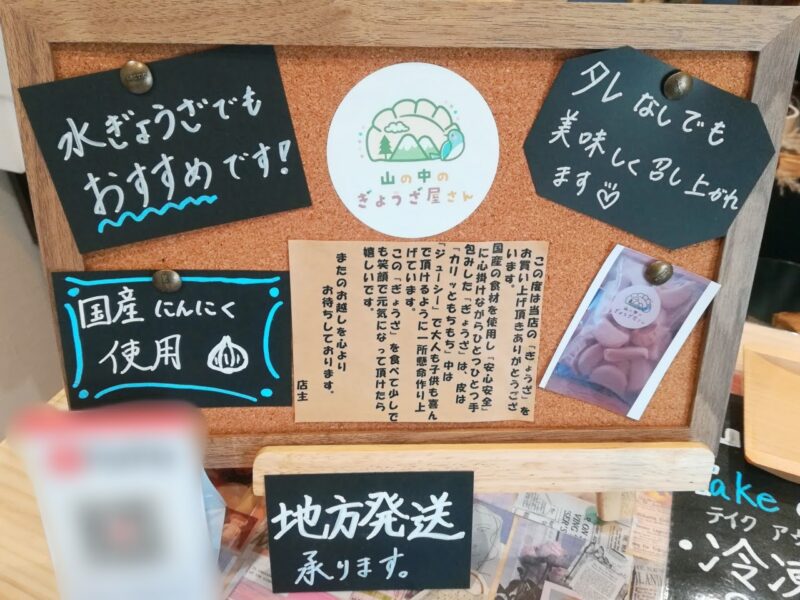 水ぎょうざでも
おすすめです!
山の中の
ぎょうざ屋さん
タレなしでも
美味しく召し上がれ
ます♡
国産にんにく
使用
この度は当店の「ぎょうざ」を
お買い上げ頂きありがとうござ
います。
国産の食材を使用し「安心安全」
に心掛けながらひとつひとつ手
包みした「ぎょうざ」は、皮は
「カリッともちもち」中は
「ジューシー」で大人も子供も喜ん
で頂けるように一所懸命作り上
げています。
この「ぎょうざ」を食べて少しで
も笑顔で元気になって頂けたら
嬉しいです。
またのお越しを心より
お待ちしております。
店主
地方発送
承ります。
Take
テイク ア
・冷凍